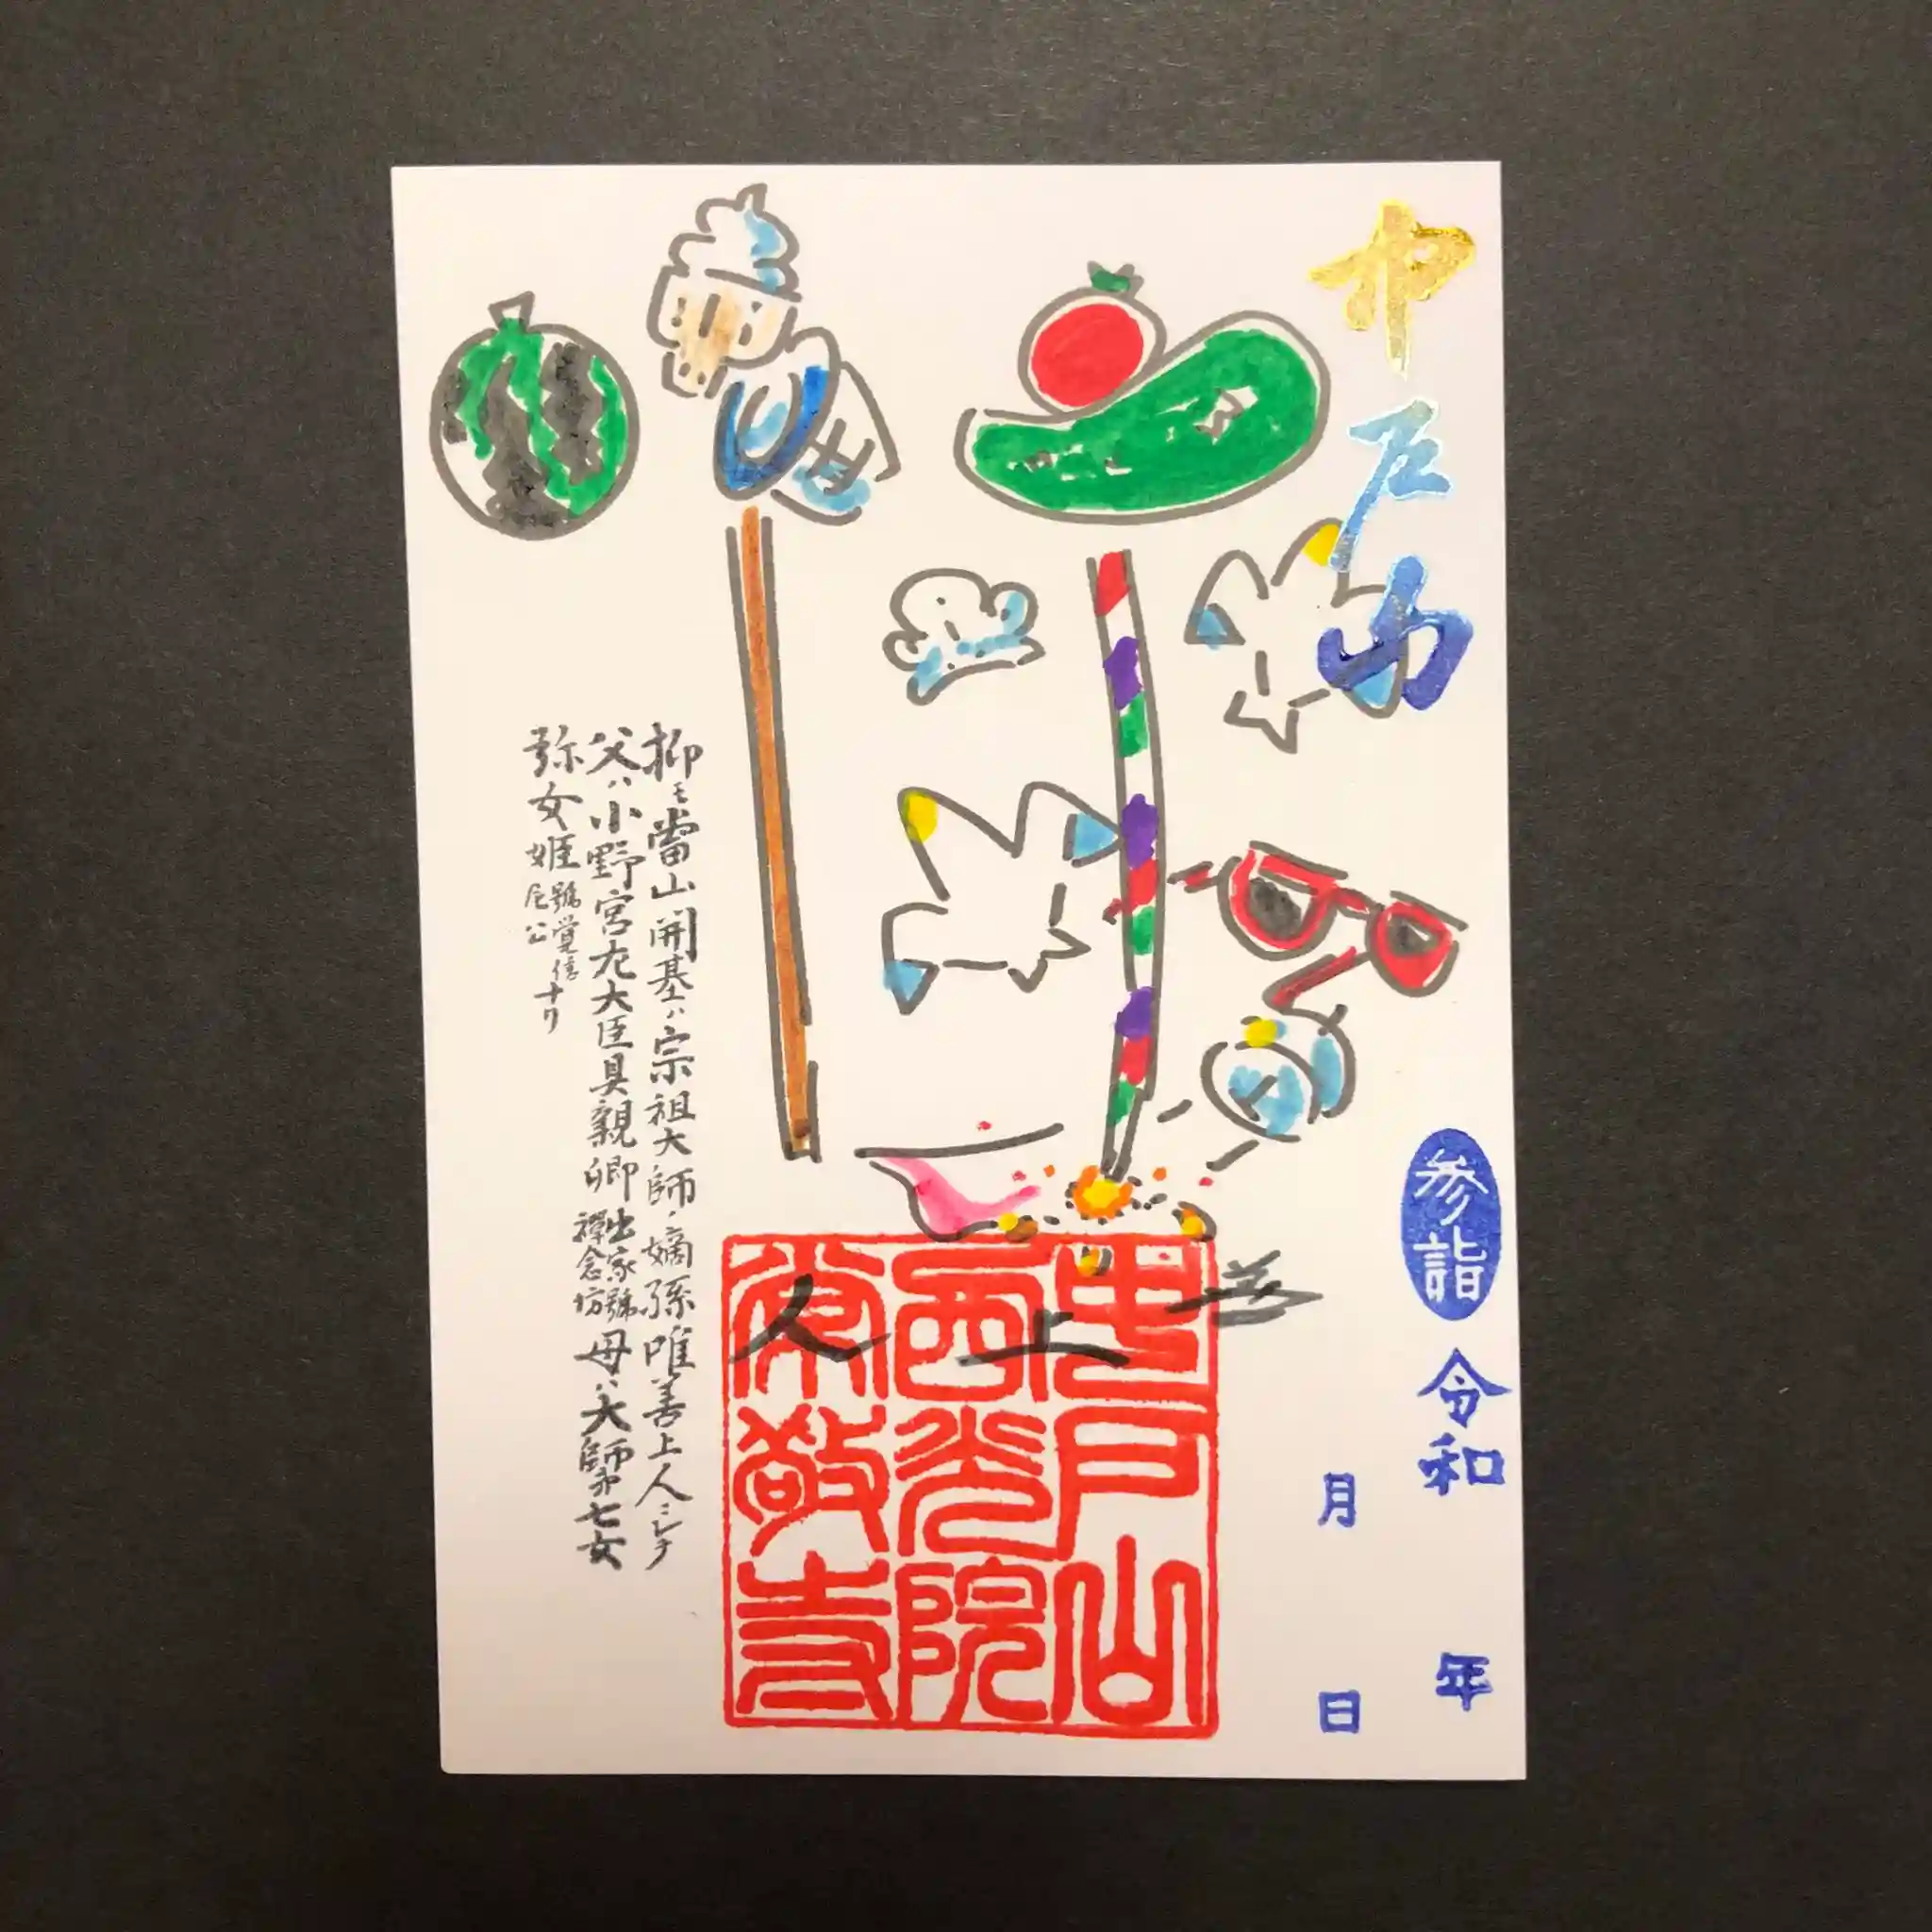 中戸山
参詣
令和 年
月 日
上人
中戸山
西光院
常敬寺
抑モ當山開基ハ宗祖大師ノ嫡孫唯善上人ニシテ
父ハ小野宮左大臣具親卿出家號禪念坊母ハ大師第七女
弥女姫號覚信尼公ナリ